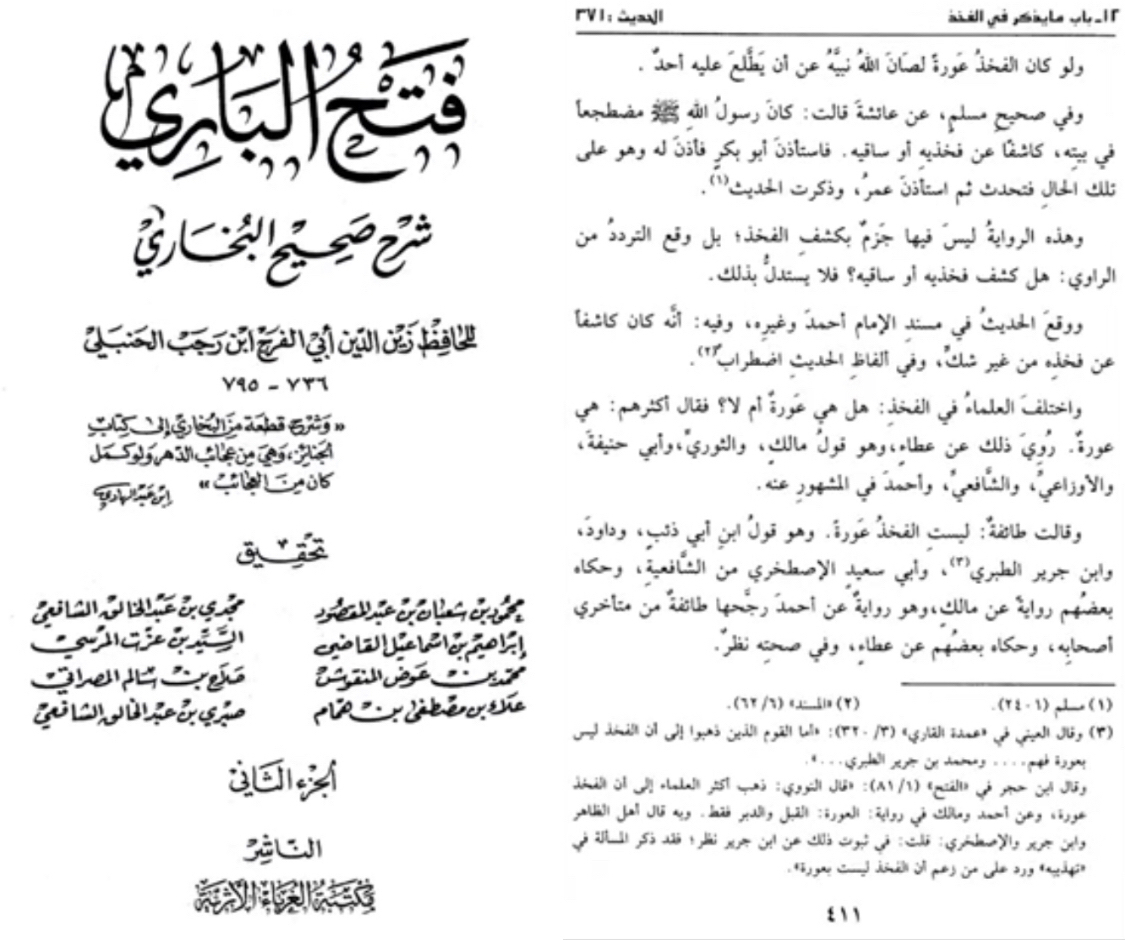 فَتْحُ الْبَارِي
شَرْحُ صَحِيْحِ الْبُخَارِيْ
للحافظ زين الدين أبي الفرج ابن رجب الحنبلي
٧٣٦ - ٧٩٥
«وشرح قطعة من البخاري إلى كتاب
الجنائز، وهي من عجائب الدهر ولو كمل
كان من العجائب»
ابن عبد الهادي
تحقيق
محمود بن شعبان بن عبد المقصود
مجدي بن عبد الخالق الشافعي
إبراهيم بن اسماعيل القاضي
السيد بن عزت المرسي
محمد بن عوض المنقوش
صلاح بن سالم المصراتي
علاء بن مصطفى بن همام
صبري بن عبد الخالق الشافعي
الجزء الثاني
الناشر
مكتبة الغرباء الأثرية
١٢ـ باب ما يذكر في الفخذ
الحديث : ٣٧١
ولو كان الفخذُ عَورةً لصَانَ اللهُ نبيَّهُ عن أن يَطَّلعَ عليه أحدٌ .
وفي صحيحِ مسلمٍ، عن عائشةَ قالت: كانَ رسولُ اللهِ ﷺ مضطجعاً
في بيتِه، كاشفًا عن فخذيهِ أو ساقيه. فاستأذنَ أبو بكرٍ فأذنَ له وهو على
تلك الحالِ فتحدث ثم استأذنَ عمرُ، وذكرت الحديث(١).
وهذه الروايةُ ليسَ فيها جَزمٌ بكشفِ الفخذ؛ بل وقع الترددُ من
الراوي: هل كشف فخذيه أو ساقيه؟ فلا يستدلُّ بذلك.
ووقعَ الحديثُ في مسندِ الإمامِ أحمدَ وغيرِه، وفيه: أنَّه كان كاشفاً
عن فخذِه من غير شكٍّ، وفي ألفاظِ الحديثِ اضطرابٌ(٢).
واختلفَ العلماءُ في الفخذِ: هل هي عَورةٌ أم لا؟ فقال أكثرهم: هي
عورةٌ. رُوِيَ ذلك عن عطاءٍ،وهو قولُ مالكٍ، والثوريِّ،وأبي حنيفةَ،
والأوزاعيِّ، والشَّافعيِّ، وأحمدَ في المشهورِ عنه.
وقالت طائفةٌ: ليستِ الفخذُ عَورةً. وهو قولُ ابنِ أبي ذئبٍ، وداودَ،
وابن جرير الطبري(٣)، وأبي سعيدٍ الإصطخري من الشَّافعيةِ، وحكاه
بعضُهم روايةً عن مالكٍ،وهو روايةٌ عن أحمدَ رجَّحها طائفةٌ من متأخري
أصحابِه، وحكاه بعضُهم عن عطاءٍ، وفي صحتِه نظرٌ.
(١) مسلم (٢٤٠١).
(٢) «المسند» (٦٢/٦).
(٣) وقال العيني في «عمدة القاري» (٣/ ٣٢٠): «أما القوم الذين ذهبوا إلى أن الفخذ ليس
بعورة فهم.... ومحمد بن جرير الطبري...».
وقال ابن حجر في «الفتح» (٨١/٦): «قال النووي: ذهب أكثر العلماء إلى أن الفخذ
عورة، وعن أحمد ومالك في رواية: العورة: القبل والدبر فقط. وبه قال أهل الظاهر
وابن جرير والإصطخري: قلت: في ثبوت ذلك عن ابن جرير نظر؛ فقد ذكر المسألة في
«تهذيبه» ورد على من زعم أن الفخذ ليست بعورة».
٤١١